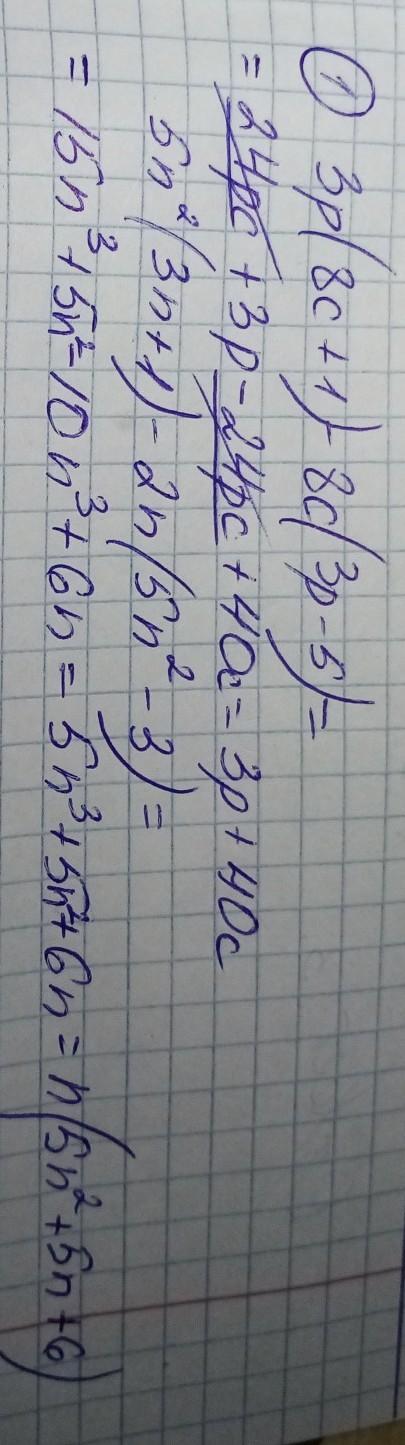 ① 3p(8c+1)-8c(3p-5)=
=24pc+3p-24pc+40c=3p+40c
5n²(3n+1)-2n(5n²-3)=
=15n³+5n²-10n³+6n=5n³+5n²+6n=n(5n²+5n+6)